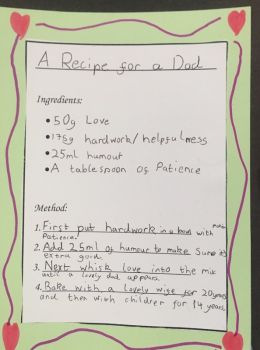 A Recipe for a Dad
Ingredients:
• 50g Love
• 175g hardwork/helpfulness
• 25ml humour
• A tablespoon of Patience
Method:
1. First put hardwork in a bowl with
Patience.
2. Add 25ml of humour to make sure its
extra good.
3. Next whisk love into the mix
until a lovely dad appears.
4. Bake with a lovely wife for 20 years
and then with children for 14 years.